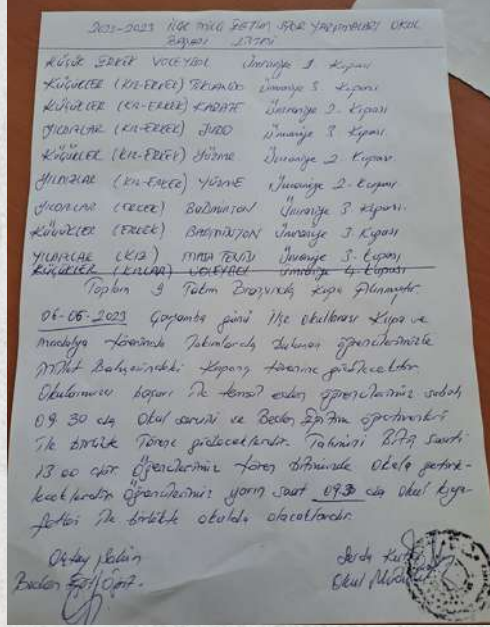 2022-2023 İLÇE MİLLİ EĞİTİM SPOR YARIŞMALARI OKUL
BAŞARI LİSTESİ
KÜÇÜK ERKEK VOLEYBOL Ümraniye 1. Kupası
KÜÇÜKLER (KIZ-ERKEK) TEKVANDO Ümraniye 3. Kupası
KÜÇÜKLER (KIZ-ERKEK) KARATE Ümraniye 2. Kupası
YILDIZLAR (KIZ-ERKEK) JUDO Ümraniye 3. Kupası
KÜÇÜKLER (KIZ-ERKEK) YÜZME Ümraniye 2. Kupası.
YILDIZLAR (KIZ-ERKEK) YÜZME Ümraniye 2. Kupası
YILDIZLAR (ERKEK) BADMINTON Ümraniye 3. Kupası.
KÜÇÜKLER (ERKEK) BADMINTON Ümraniye 3. Kupası
YILDIZLAR (KIZ) MASA TENİSİ Ümraniye 3. Kupası
KÜÇÜKLER (KIZLAR) VOLEYBOL Ümraniye 4. Kupası
Toplam 9 Takım Branşında Kupa Alınmıştır.
Çarşamba günü İlçe okullararası Kupa ve
madalya töreninde Takımlarda bulunan öğrencilerimizle
Millet Bahçesindeki Kapanış törenine gidilecektir.
Okulumuzu başarı ile temsil eden öğrencilerimiz sabah
09.30 da Okul servisi ve Beden Eğitim öğretmenleri
ile birlikte Törene gideceklerdir. Tahmini Bitiş saati
13.00 dır Öğrencilerimiz tören bitiminde okula getiri-
leceklerdir Öğrencilerimiz yarın saat 09.30 da okul kıya-
fetleri ile birlikte okulda olacaklardır.
Beden Eğt. Öğrt.
Okul Müdürü